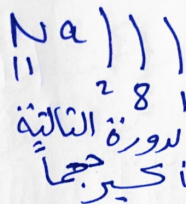 Na ) ) )
11 2 8 1
لدورة الثالثة
كبير حجماً